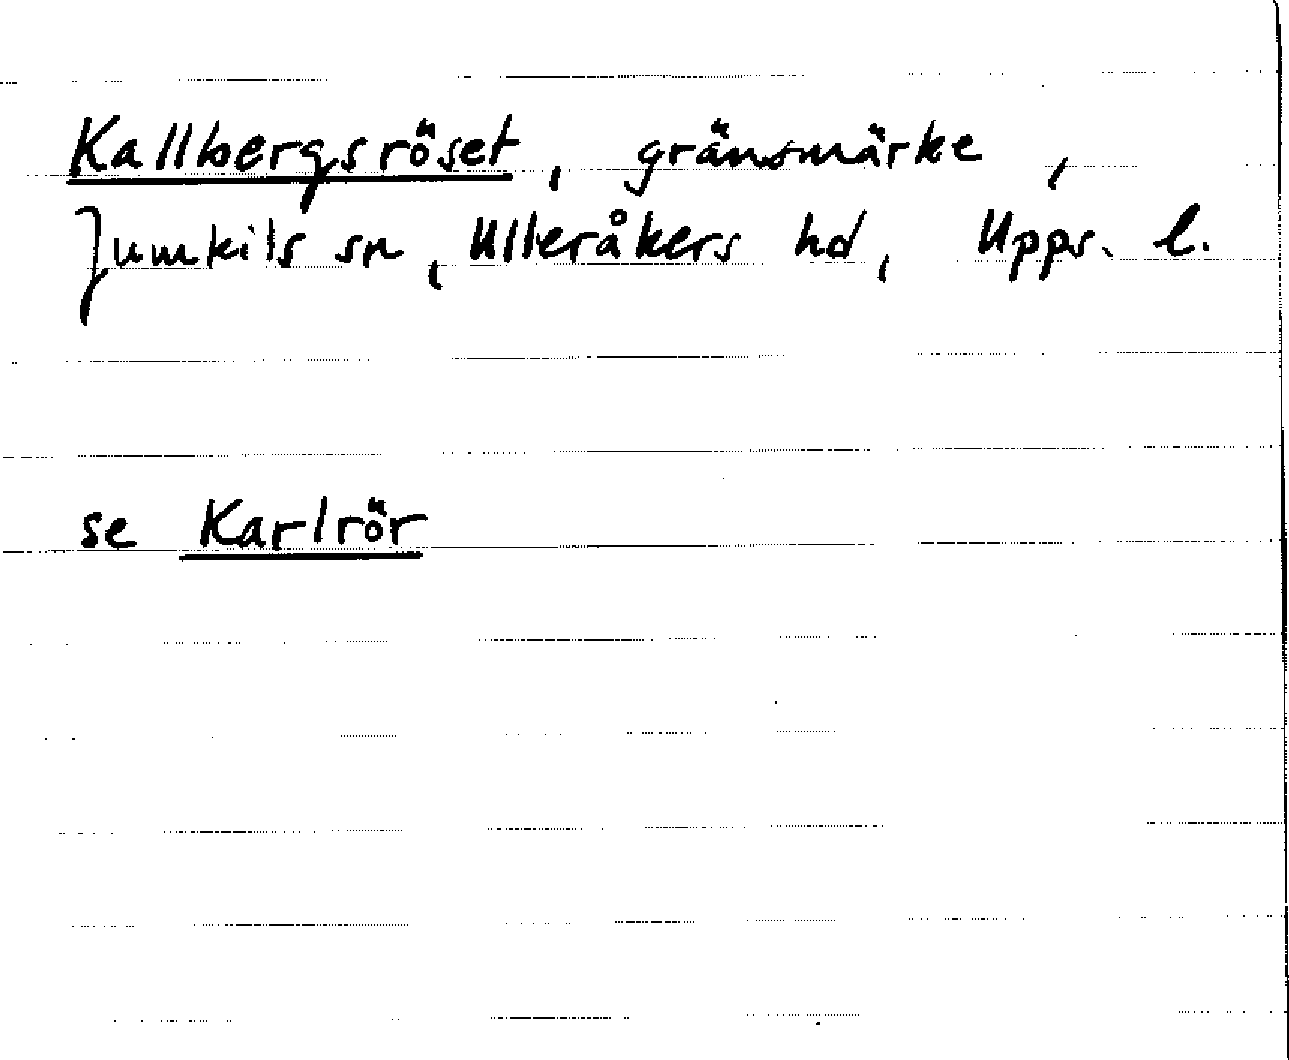 Kallbergsröset, gränsmärke,
Jumkils sn, Ulleråkers hd, Upps. l.
se Karlrör